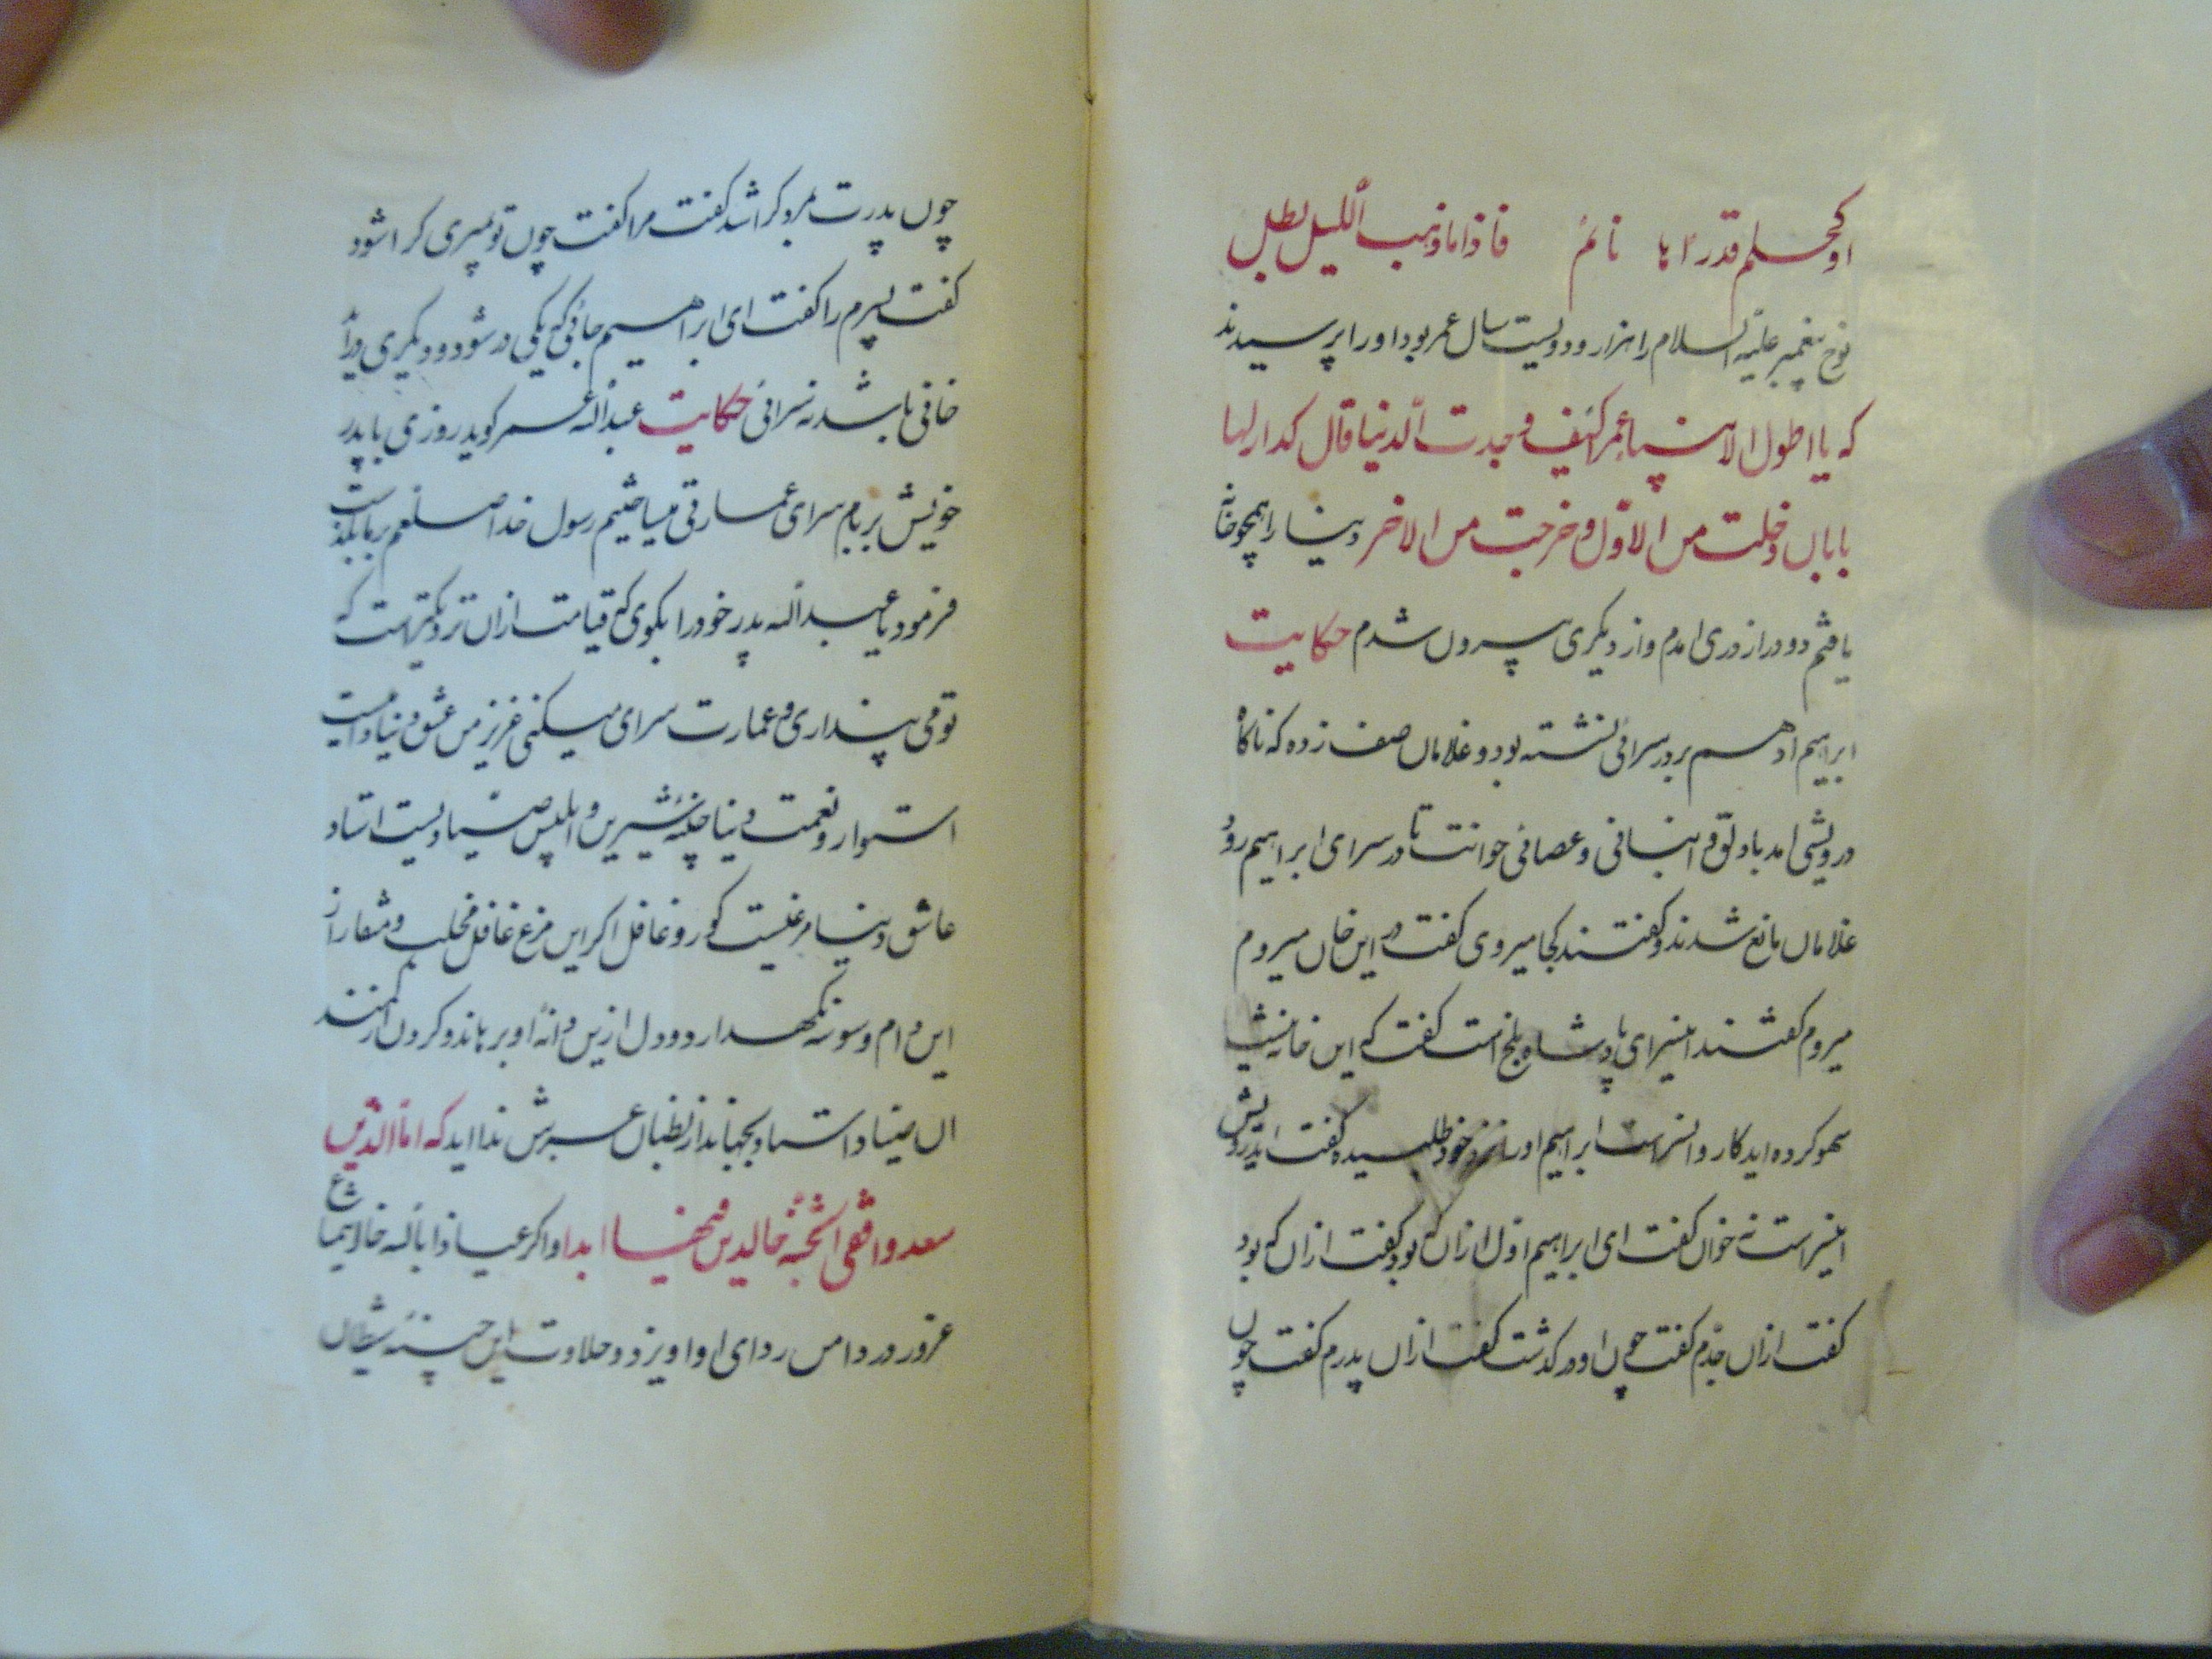 اوکحلم قدر اها نائم فاذا ما ذهب اللیل بطل
نوح پیغمبر علیه السلام را هزار و دویست سال عمر بود او را پرسیدند
که یا اطول الانبیا عمر کیف وجدت الدنیا قال کدار لها
بابان دخلت من الاول و خرجت من الاخر دنیا را همچو خانه
یافتم دو در از دری امدم و از دیکری بیرون شدم حکایت
ابراهیم ادهم بر در سرائی نشسته بود و غلامان صف زده که ناکاه
درویشی امد با دلقی و انبانی و عصائی خواست تا در سرای ابراهیم رود
غلامان مانع شدند و کفتند کجا میروی کفت در این خان میروم
میروم کفتند این سرای پادشاه بلخ است کفت که این خانه شیا
سهو کرده اید کاروانسراست ابراهیم او را نزد خود طلبیده کفت ای درویش
این سراست نه خوان کفت ای ابراهیم اول ازان که بود کفت ازان که بود
کفت ازان جدم کفت چون او در کذشت کفت ازان پدرم کفت چون
چون پدرت بمرد کرا شد کفت مرا کفت چون تو بمیری کرا شود
کفت پسرم را کفت ای ابراهیم جائی که یکی در شود و دیکری دراید
خانی باشد نه سرائی حکایت عبدالله عمر کوید روزی با پدر
خویش بر بام سرای عمارتی میساختیم رسول خدا صلعم بر ما بکذشت
فرمود یا عبدالله پدر خود را بکوی که قیامت ازان نزدیکتر است که
تو می پنداری و عمارت سرای میکنی عزیز من عشق دنیا دامیست
استوار و نعمت دنیا چینه شیرین و ابلیس صیادیست استاد
عاشق دنیا مرغیست کور و غافل اکر این مرغ غافل مخلب و منقار از
این دام وسوسه نکهدارد و دل ازین دانه او برهاند و کردن از کمند
ان صیاد استاد بجهاند از بطنان عرش ندا اید که اما الذین
سعدوا ففی الجنة خالدین فیها ابدا و اکر عیاذا بالله خالا یما
غرور در دامن ردای او اویزد و حلاوت این چینه شیطان